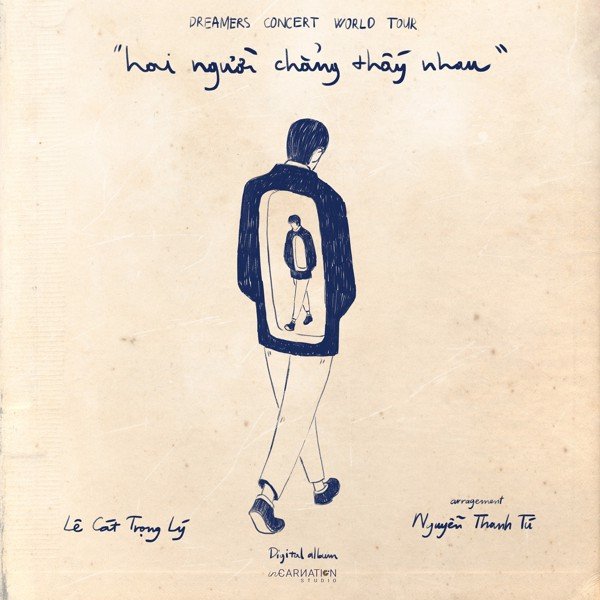 DREAMERS CONCERT WORLD TOUR
"hai người chẳng thấy nhau"
arragement
Lê Cát Trọng Lý
Nguyễn Thanh Tú
Digital album
inCARNATION
STUDIO